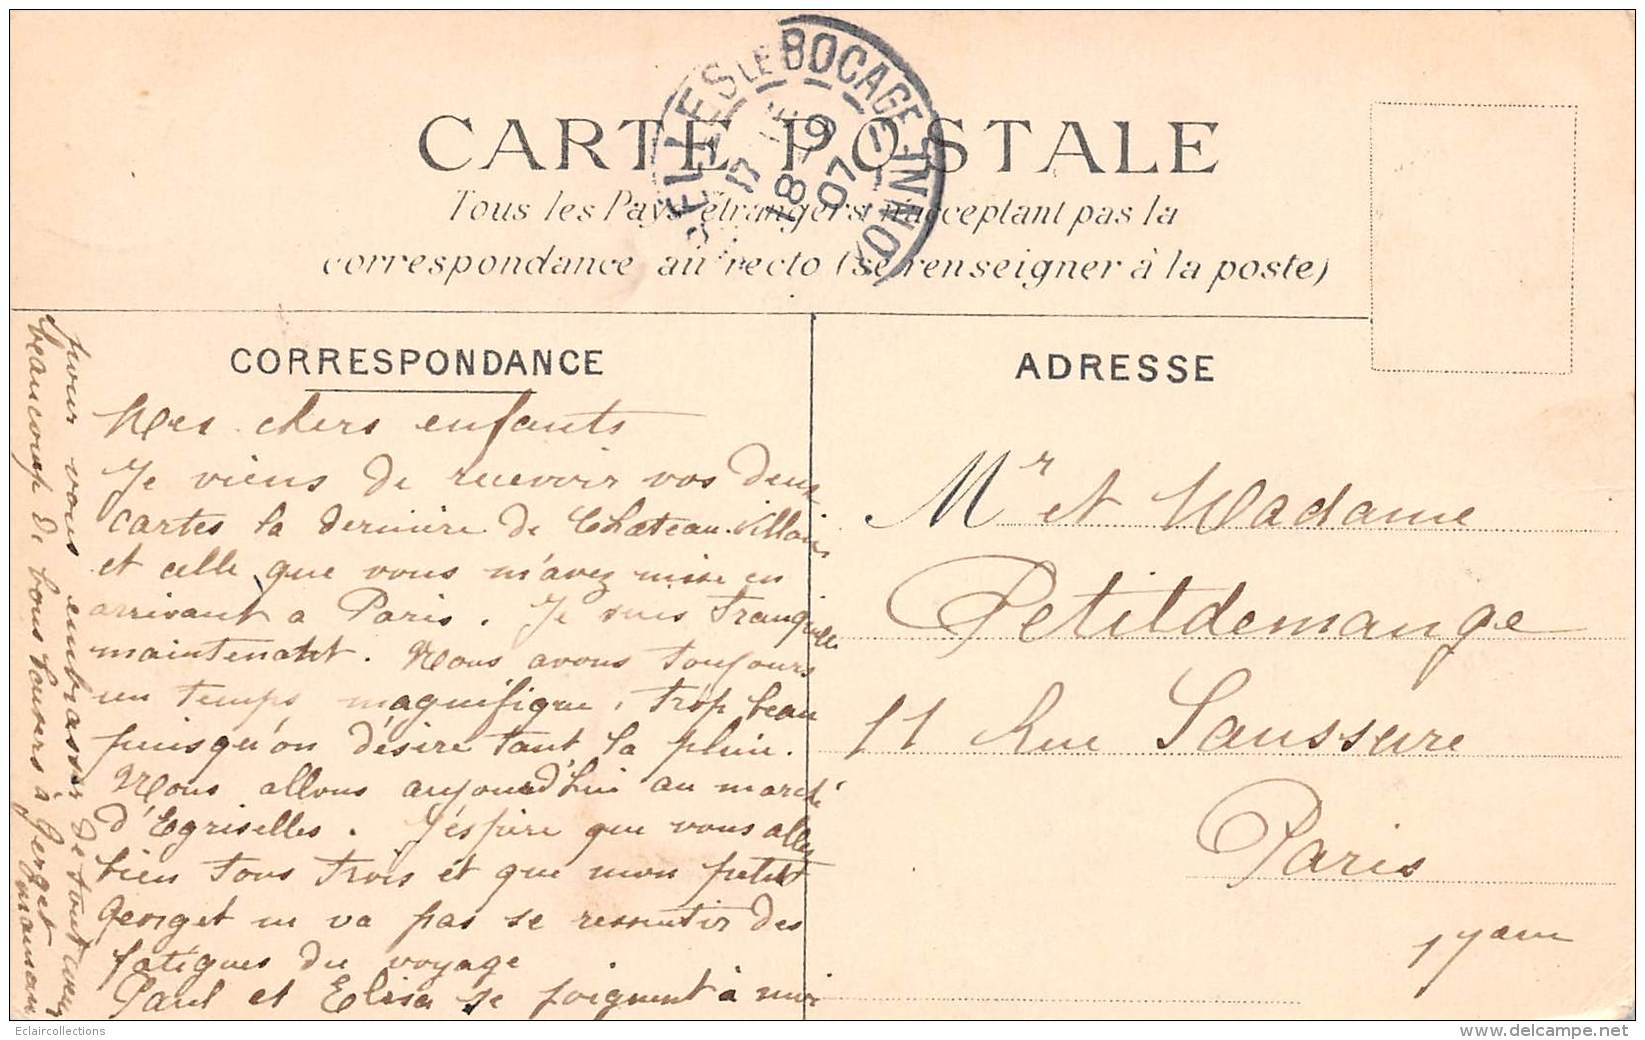 CARTE POSTALE
Tous les Pays étrangers n'acceptant pas la
correspondance au recto (se renseigner à la poste)
LE BOCAGE
YONNE
17
18 9
07
CORRESPONDANCE
Mes chers enfants
Je viens de recevoir vos deux
cartes la dernière de Château-Villain
et celle que vous m'avez mise en
arrivant a Paris. Je suis tranquille
maintenant. Nous avons toujours
un temps magnifique, trop beau
puisqu'on désire tant la pluie.
Nous allons aujourd'hui au marché
d'Egriselles. J'espère que vous allez
bien tous trois et que mon petit
Georget ne va pas se ressentir des
fatigues du voyage
Paul et Elisa se joignent à moi
pour vous embrasser de tout cœur
beaucoup de bons baisers à Georget
maman
ADRESSE
Mr et Madame
Petitdemange
11 Rue Saussure
Paris
17eme
Eclaircollections
www.delcampe.net